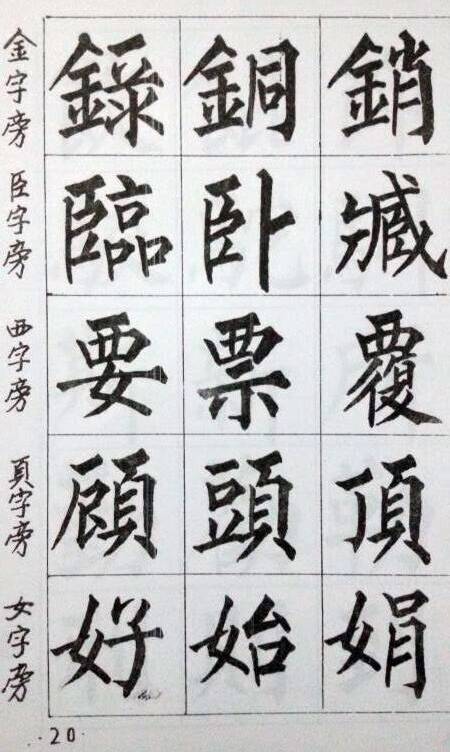 金字旁 錄 銅 銷
臣字旁 臨 卧 臧
西字旁 要 票 覆
頁字旁 顧 頭 頂
女字旁 好 始 娟
·20·